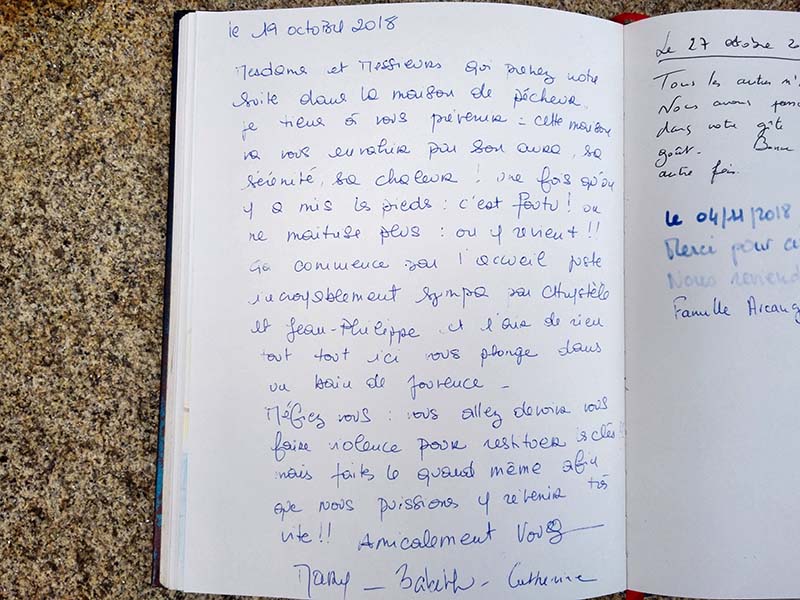 le 19 octobre 2018
Mesdame et Messieurs qui prenez notre
suite dans la maison de pêcheur.
je tiens à vous prévenir = cette maison
va vous envoûter par son aura, sa
sérénité, sa chaleur ! une fois qu'on
y a mis les pieds : c'est foutu ! on
ne maîtrise plus : on y revient !!
ça commence par l'accueil juste
incroyablement sympa par Chrystèle
et Jean-Philippe et l'air de rien
tout tout ici vous plonge dans
un bain de jouvence -
Méfiez vous : vous allez devoir vous
faire violence pour restituer les clés !!
mais faites le quand même afin
que nous puissions y revenir très
vite !! Amicalement Vous
Mary - Babeth - Catherine
Le 27 octobre 2
Tous les autres n'
Nous avons pass
dans votre gîte
goût. Bonne
autre fois.
le 04/11/2018
Merci pour
Nous reviend
Famille Arcang